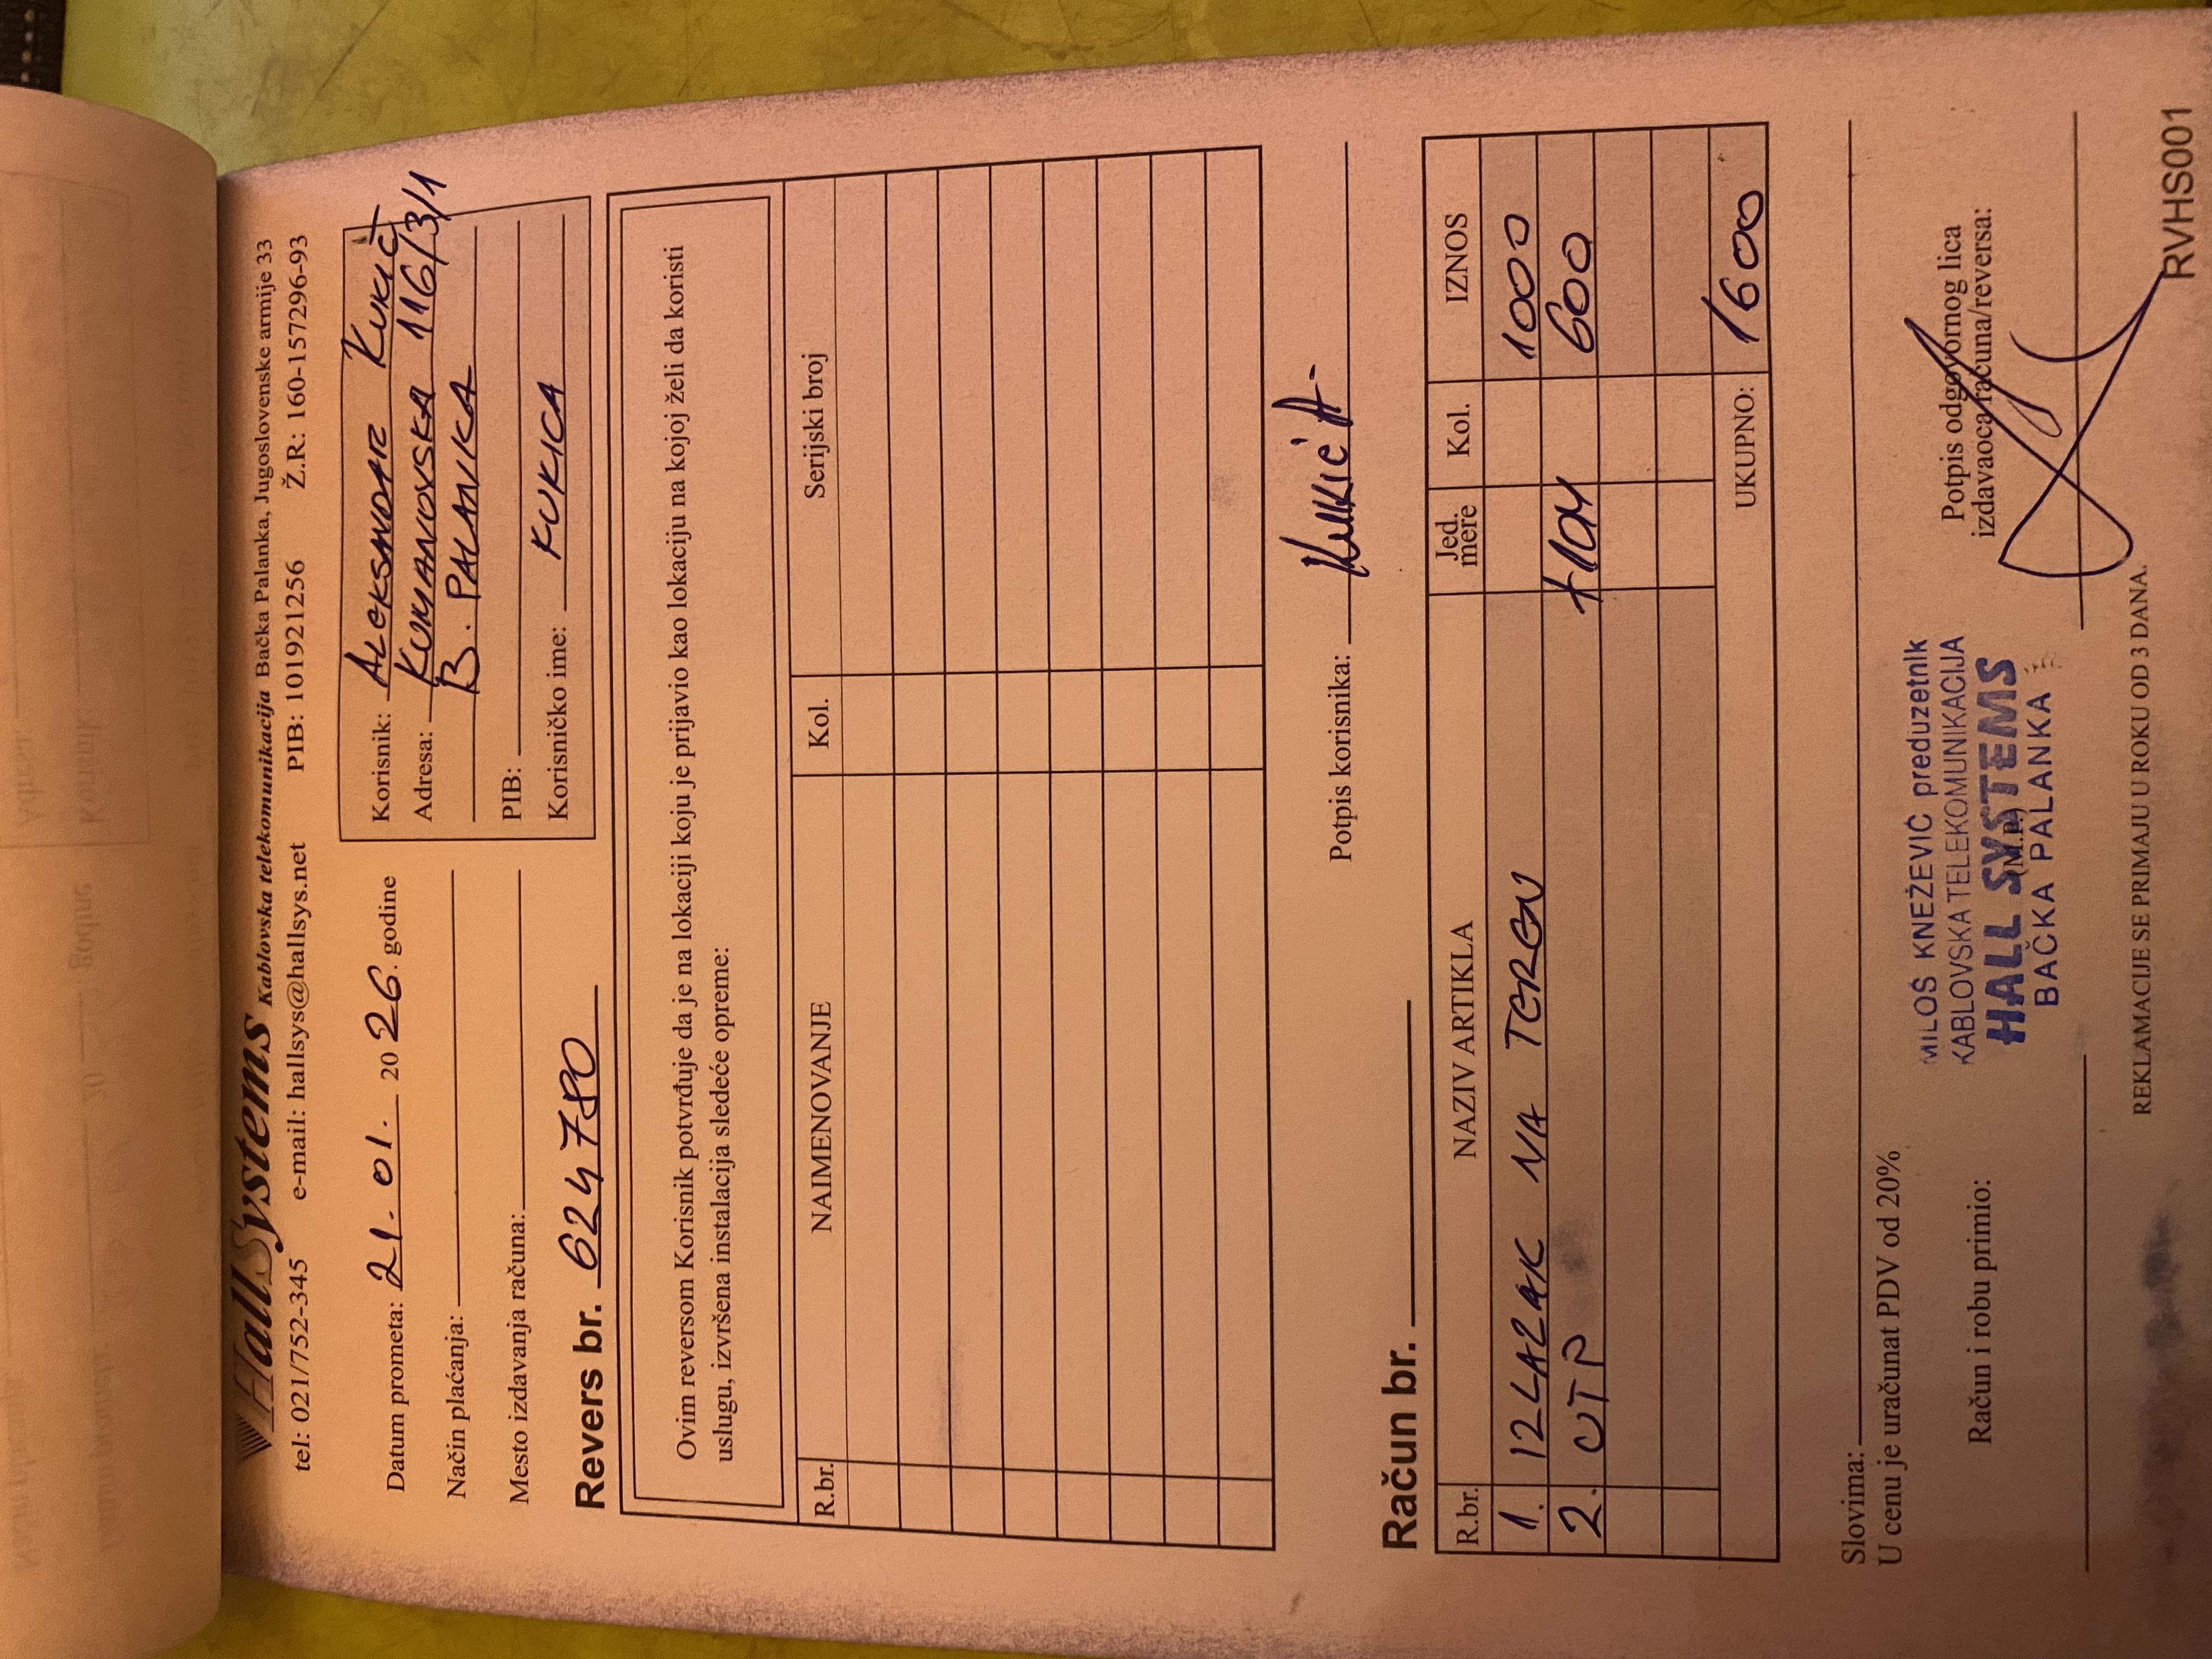 HallSystems Kablovska telekomunikacija Bačka Palanka, Jugoslovenske armije 33
tel: 021/752-345 e-mail: hallsys@hallsys.net PIB: 101921256 Ž.R: 160-157296-93
Datum prometa: 21.01. 2026. godine
Način plaćanja:
Mesto izdavanja računa:
Revers br. 624780
Korisnik: ALEKSANDAR KUKIĆ
Adresa: KUMANOVSKA 116/3/1
B. PALANKA
PIB:
Korisničko ime: KUKICA
Ovim reversom Korisnik potvrđuje da je na lokaciji koju je prijavio kao lokaciju na kojoj želi da koristi
uslugu, izvršena instalacija sledeće opreme:
R.br. NAIMENOVANJE Kol. Serijski broj
Potpis korisnika: Kukić A-
Račun br.
R.br. NAZIV ARTIKLA Jed. mere Kol. IZNOS
1. IZLAZAK NA TEREN 1000
2. UTP 600
UKUPNO: 1600
Slovima:
U cenu je uračunat PDV od 20%
Račun i robu primio:
MILOŠ KNEŽEVIĆ preduzetnik
KABLOVSKA TELEKOMUNIKACIJA
HALL SYSTEMS
(M.P.)
BAČKA PALANKA
Potpis odgovornog lica
izdavaoca računa/reversa:
REKLAMACIJE SE PRIMAJU U ROKU OD 3 DANA.
RVHS001